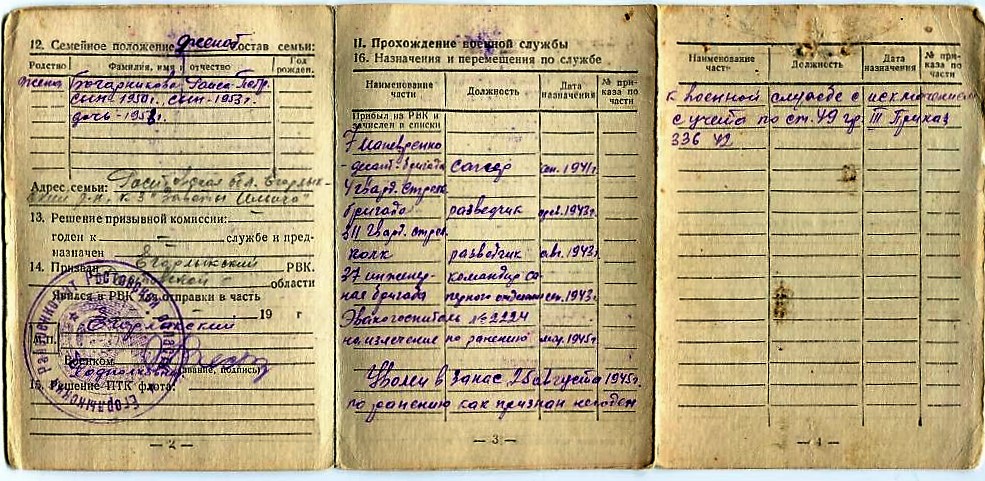 12. Семейное положение женат Состав семьи:
Родство Фамилия, имя, отчество Год рожден.
жена Бочарникова Раиса Петр.
сын-1950г. сын-1953г.
дочь-1958г.
Адрес семьи: Ростовская обл. Егорлык-
ский р-н, к-з "Заветы Ильича"
13. Решение призывной комиссии:
годен к службе и пред-
назначен
14. Призван Егорлыкский РВК.
Ростовской области
Явился в РВК для отправки в часть
19 г
Егорлыкский
М.П.
Военком
Подполковник
(звание, подпись)
15. Решение ПТК флота:
— 2 —
II. Прохождение военной службы
16. Назначения и перемещения по службе
Наименование части Должность Дата назначения № приказа по части
Прибыл из РВК и
зачислен в списки
7 Маневренно
-десант. бригада сапер сен. 1941г.
4 гвард. стрелк.
бригада разведчик фев. 1943г.
311 Гвард. стрел.
полк разведчик авг. 1943г.
37 инженер- командир са-
ная бригада перного отделен. сен. 1943г.
Эвакогоспиталь № 2224
на излечение по ранению 1945г.
Уволен в запас 25 августа 1945г.
по ранению как признан негоден
— 3 —
Наименование части Должность Дата назначения № приказа по части
к военной службе с исключением
с учета по ст. 49 гр. III Приказ
336 42
— 4 —